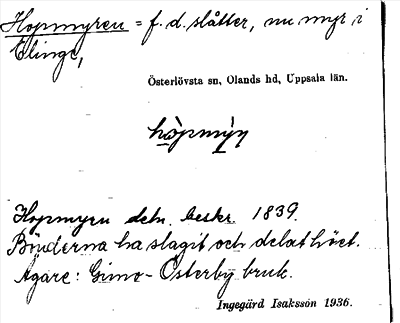 Hopmyren = f. d. slåtter, nu myr i
Elinge,
Österlövsta sn, Olands hd, Uppsala län.
hòpmýn
Hopmyrn detn. beskr. 1839.
Bönderna ha slagit och delat höet.
Ägare: Gimo-Österby bruk.
Ingegärd Isaksson 1936.